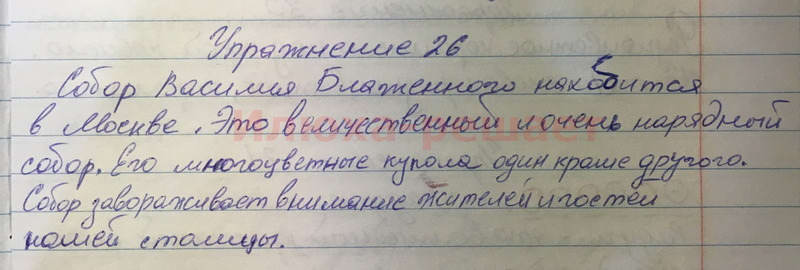 Упражнение 26
Собор Василия Блаженного находится
в Москве. Это величественный и очень нарядный
собор. Его многоцветные купола один краше другого.
Собор завораживает внимание жителей и гостей
нашей столицы.
Илюха решает